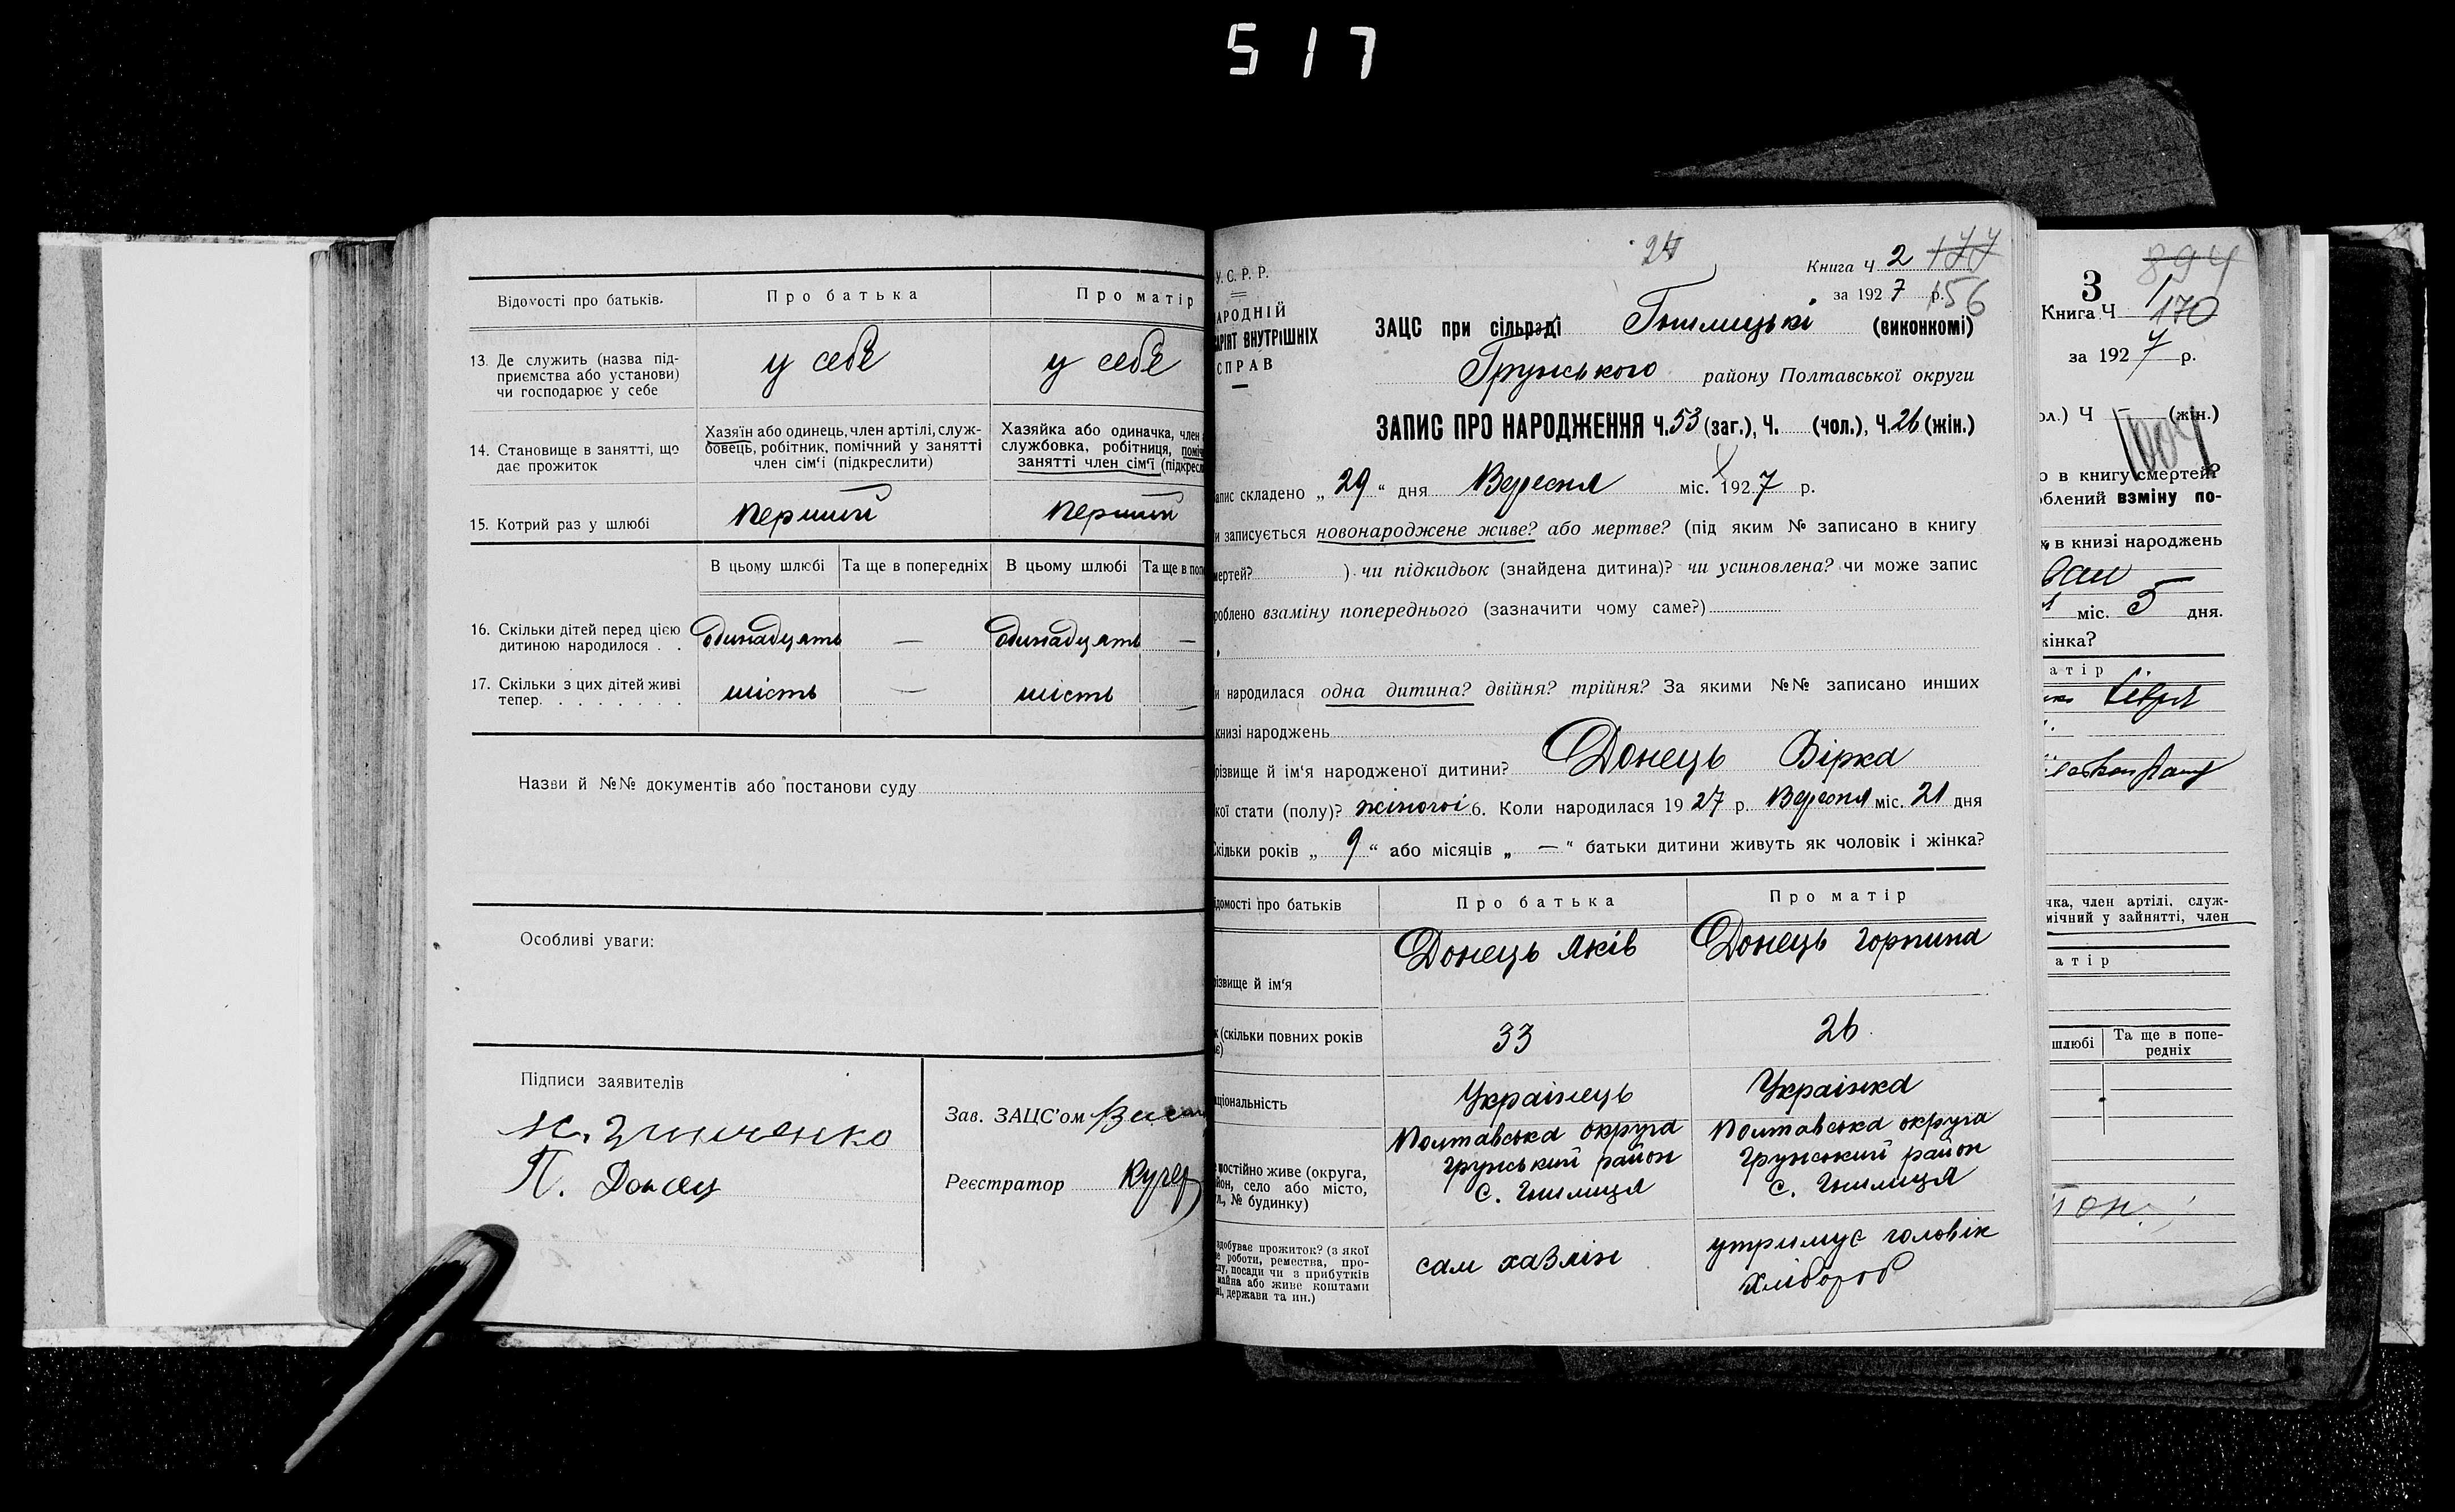 517
Відомості про батьків.
Про батька
Про матір
13. Де служить (назва під-
приємства або установи)
чи господарює у себе
у себе
у себе
14. Становище в занятті, що
дає прожиток
Хазяїн або одинець, член артілі, служ-
бовець, робітник, помічний у занятті
член сім'ї (підкреслити)
Хазяйка або одиначка, член
службовка, робітниця, поміч
занятті член сім'ї (підкресл
15. Котрий раз у шлюбі
перший
перший
В цьому шлюбі
Та ще в попередніх
В цьому шлюбі
Та ще в поп
16. Скільки дітей перед цією
дитиною народилося . .
одинадцять
—
одинадцять
—
17. Скільки з цих дітей живі
тепер. . . . . . . .
шість
—
шість
—
Назви й №№ документів або постанови суду
Особливі уваги:
Підписи заявителів
П. Донець
Зав. ЗАЦС'ом
Реєстратор Кучер
24
У. С. Р. Р.
АРОДНІЙ
АРІЯТ ВНУТРІШНІХ
СПРАВ
Книга Ч 2 177
за 1927 р. 156
ЗАЦС при сільраді Гнилицькі (виконкомі)
Грунського району Полтавської округи
ЗАПИС ПРО НАРОДЖЕННЯ Ч. 53 (заг.), Ч. (чол.), Ч. 26 (жін.)
апис складено „ 29 “ дня Вересня міс. 1927 р.
и записується новонароджене живе? або мертве? (під яким № записано в книгу
мертей? ) чи підкидьок (знайдена дитина)? чи усиновлена? чи може запис
роблено взаміну попереднього (зазначити чому саме?)
и народилася одна дитина? двійня? трійня? За якими №№ записано инших
книзі народжень
різвище й ім'я народженої дитини? Донець Вірка
кої стати (полу)? жіночоі 6. Коли народилася 1927 р. Вересня міс. 21 дня
Скільки років „ 9 “ або місяців „ — “ батьки дитини живуть як чоловік і жінка?
ідомості про батьків
Про батька
Про матір
різвище й ім'я
Донець Яків
Донець Горпина
к (скільки повних років
є)
33
26
аціональність
Украінець
Украінка
е постійно живе (округа,
йон, село або місто,
л., № будинку)
Полтавська округа
Грунський район
с. Гнилиця
Полтавська округа
Грунський район
с. Гнилиця
здобуває прожиток? (з якої
е роботи, ремества, про-
у, посади чи з прибутків
майна або живе коштами
і, держави та ин.)
сам хазяін
утримує чоловік
хлібороб
894
3
Книга Ч 1
170
за 1927 р.
ол.) Ч — (жін.)
о в книгу смертей?
облений взміну по-
в книзі народжень
міс. 5 дня.
інка?
атір
чка, член артілі, служ-
мічний у зайнятті, член
атір
шлюбі
Та ще в попе-
редніх